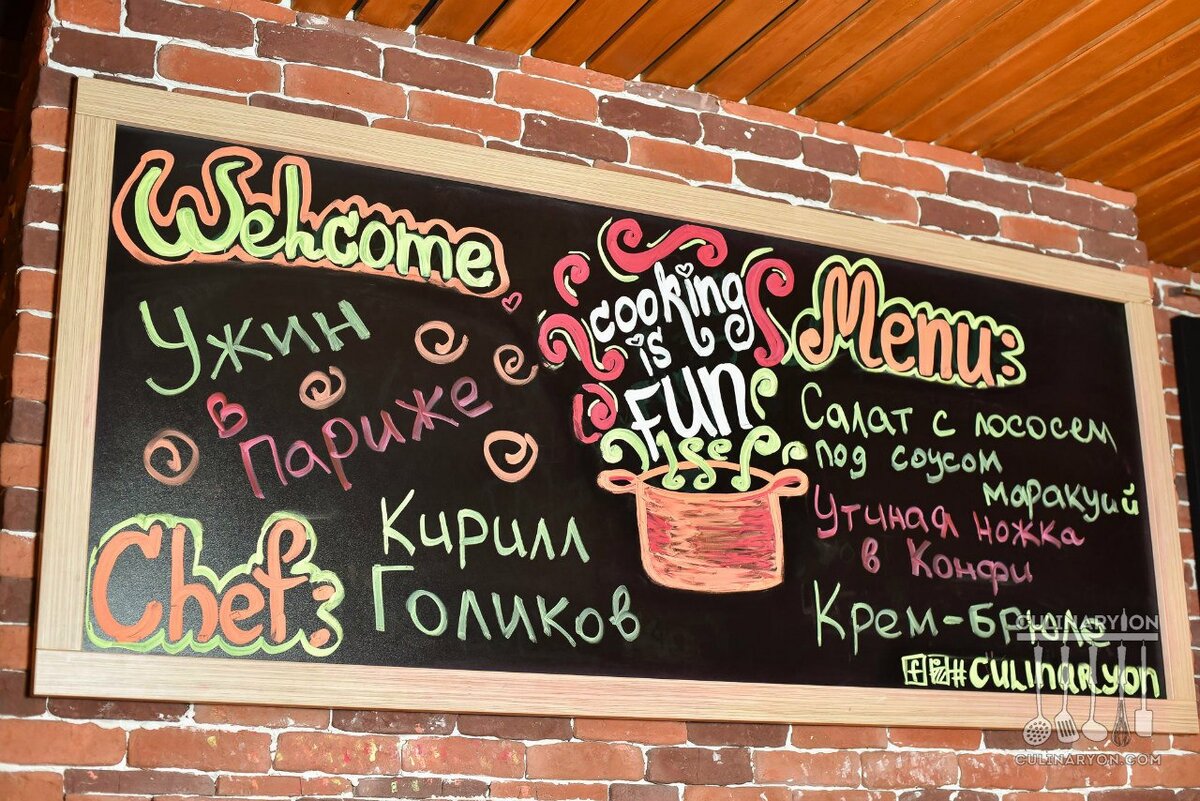 Welcome
Ужин
в Париже
Chef:
Кирилл
Голиков
cooking
is
FUN
Menu:
Салат с лососем
под соусом
маракуий
Утиная ножка
в Конфи
Крем-брюле
#CULINARYON
CULINARYON
CULINARYON.COM